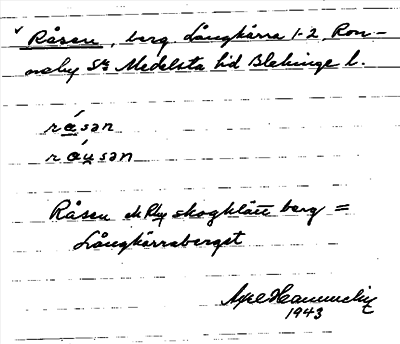 Råsen, berg Långkärra 1-2, Ron-
neby Sn Medelsta hd Blekinge l.
råsən
råusən
Råsen skogklätt berg =
Långkärraberget
Axel
1943